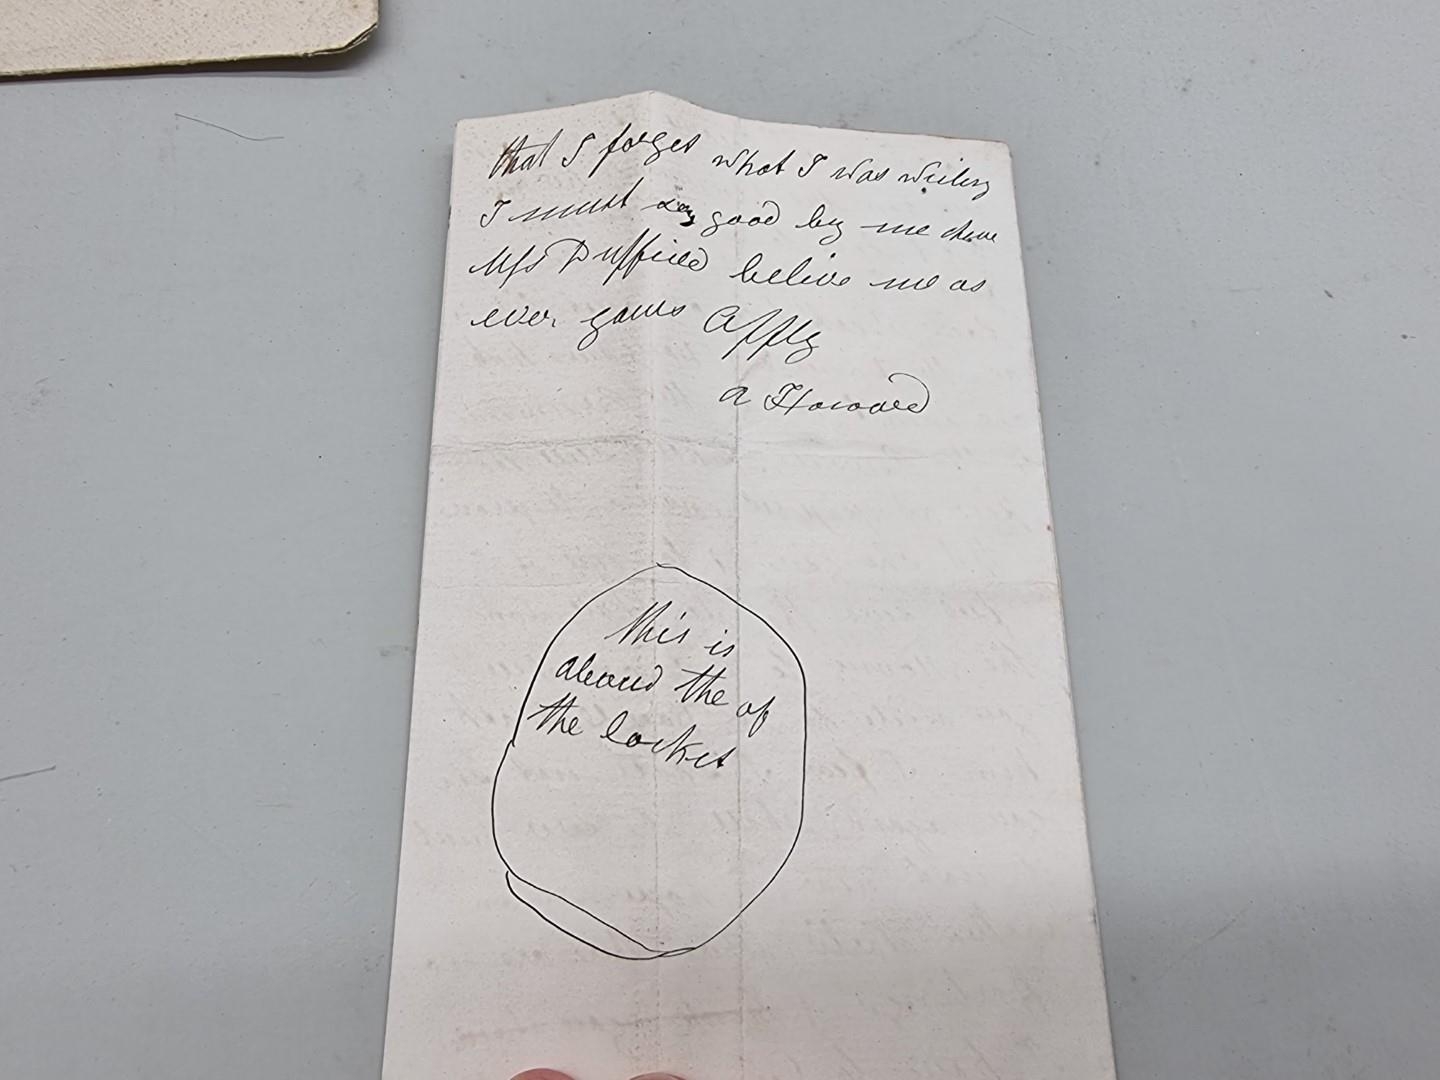 that I forget what I was writing
I must say good by me dear
Mrs Duffield belive me as
ever yours Affly
A Howard
this is
about the of
the locket